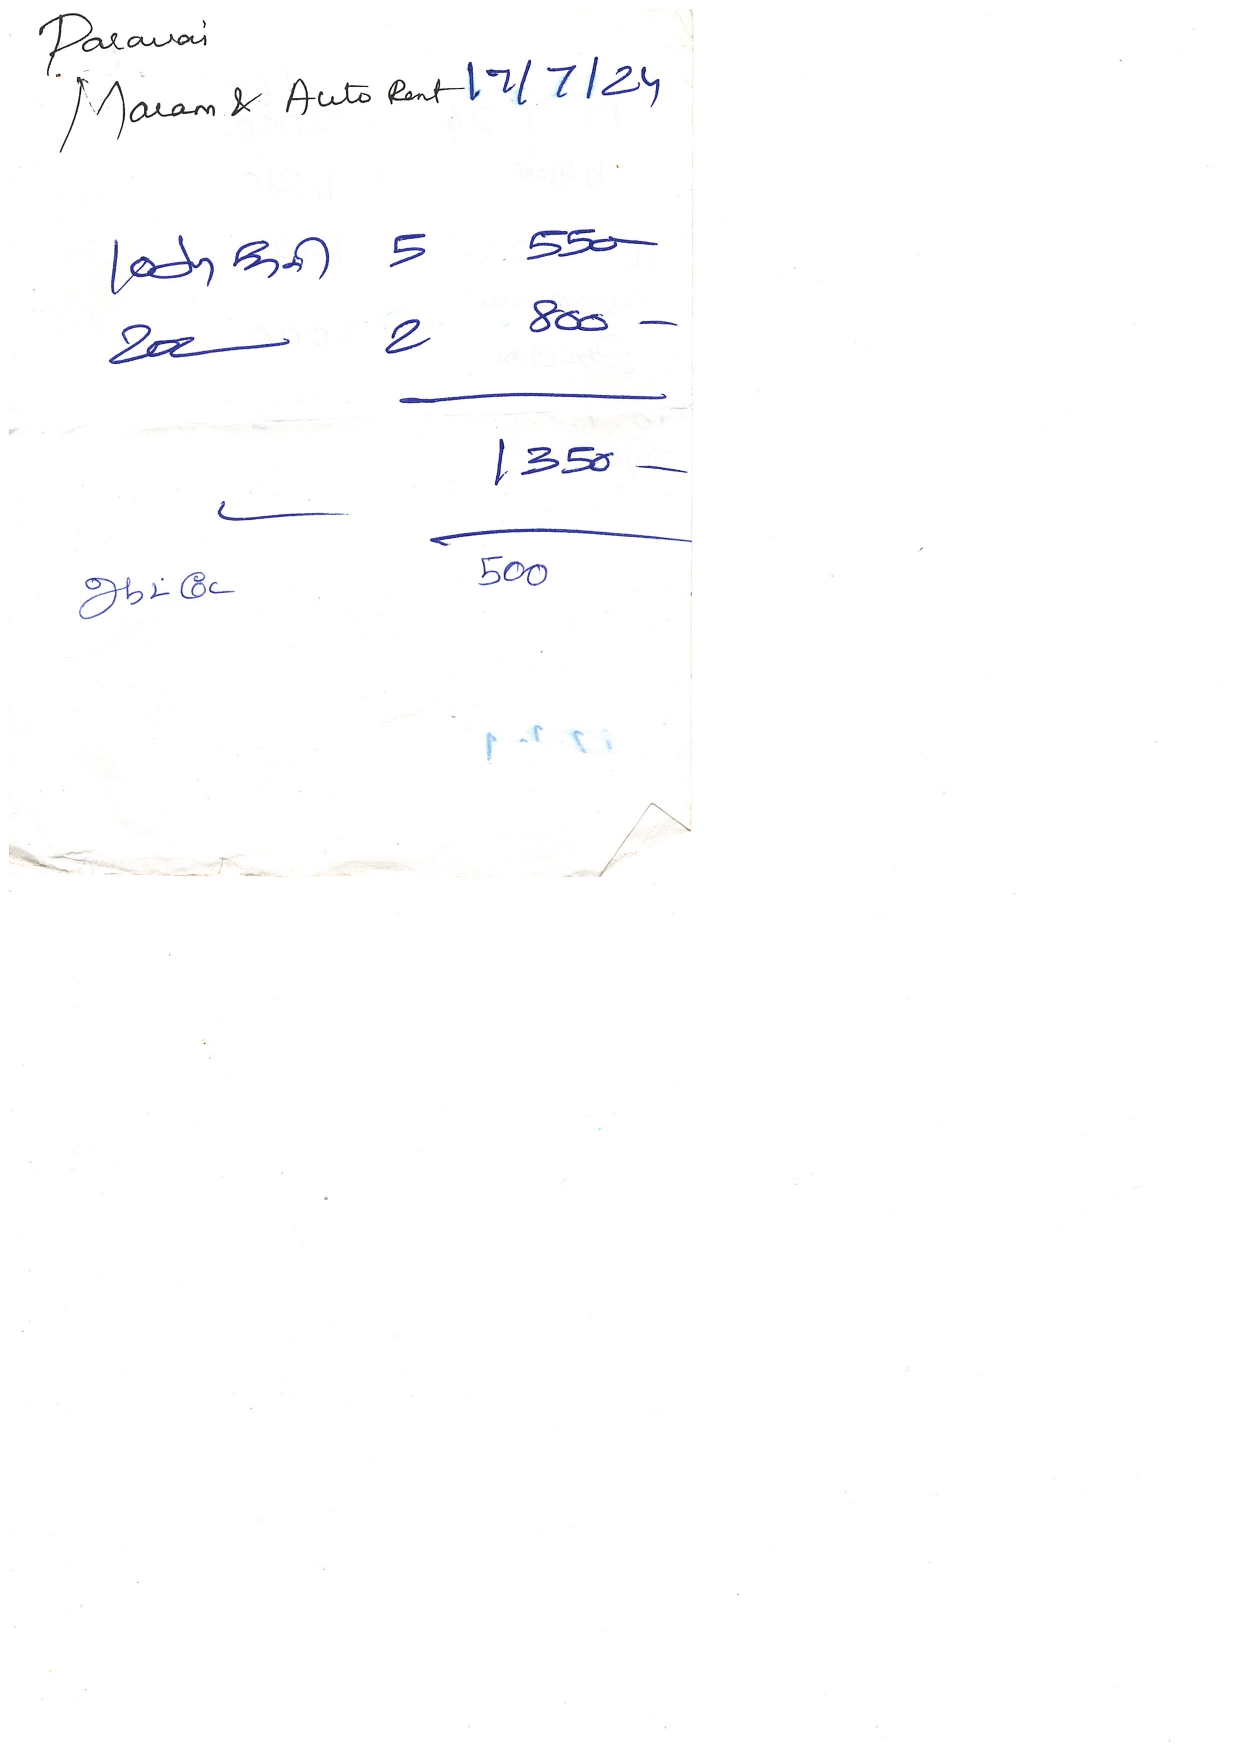 Paravai
Maram & Auto Rent 17/7/24
5 550
2 800 —
1350 —
500